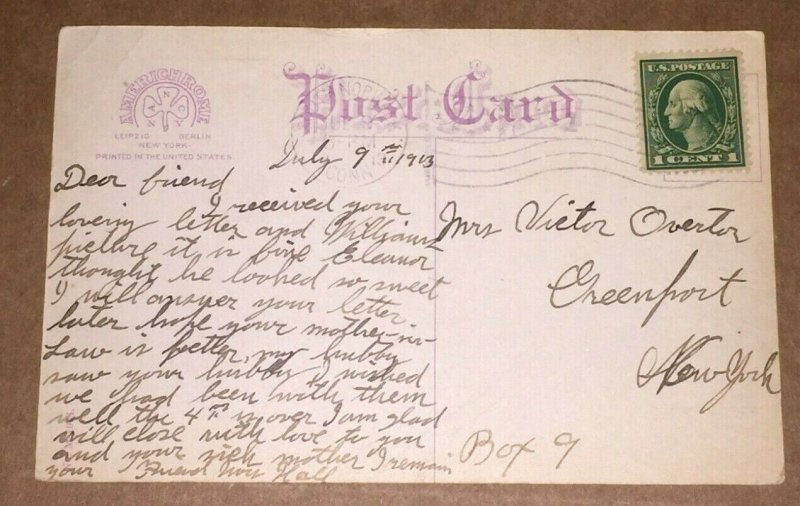 AMERICHROME
A N C
N Y
LEIPZIG BERLIN
NEW YORK
PRINTED IN THE UNITED STATES
Post Card
CONN
U.S. POSTAGE
1 CENT 1
July 9th 1913
Dear friend
I received your
loving letter and Williams
picture it is fine Eleanor
thought he looked so sweet
I will answer your letter
later hope your mother-in-
Law is better, my hubby
saw your hubby I wished
we had been with them
well the 4th is over I am glad
will close with love to you
and your sick mother I remain
your Friend Hall
Mrs Victor Overton
Greenport
New York
Box 9